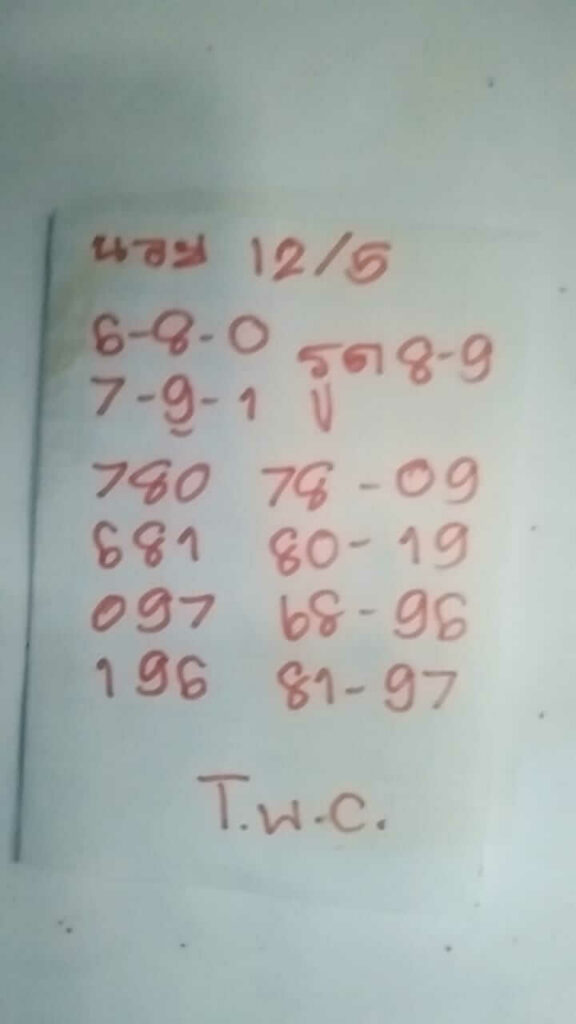 12/5
6-8-0
รูด 8-9
7-9-1
780 78-09
681 80-19
097 68-96
196 81-97
T.W.C.